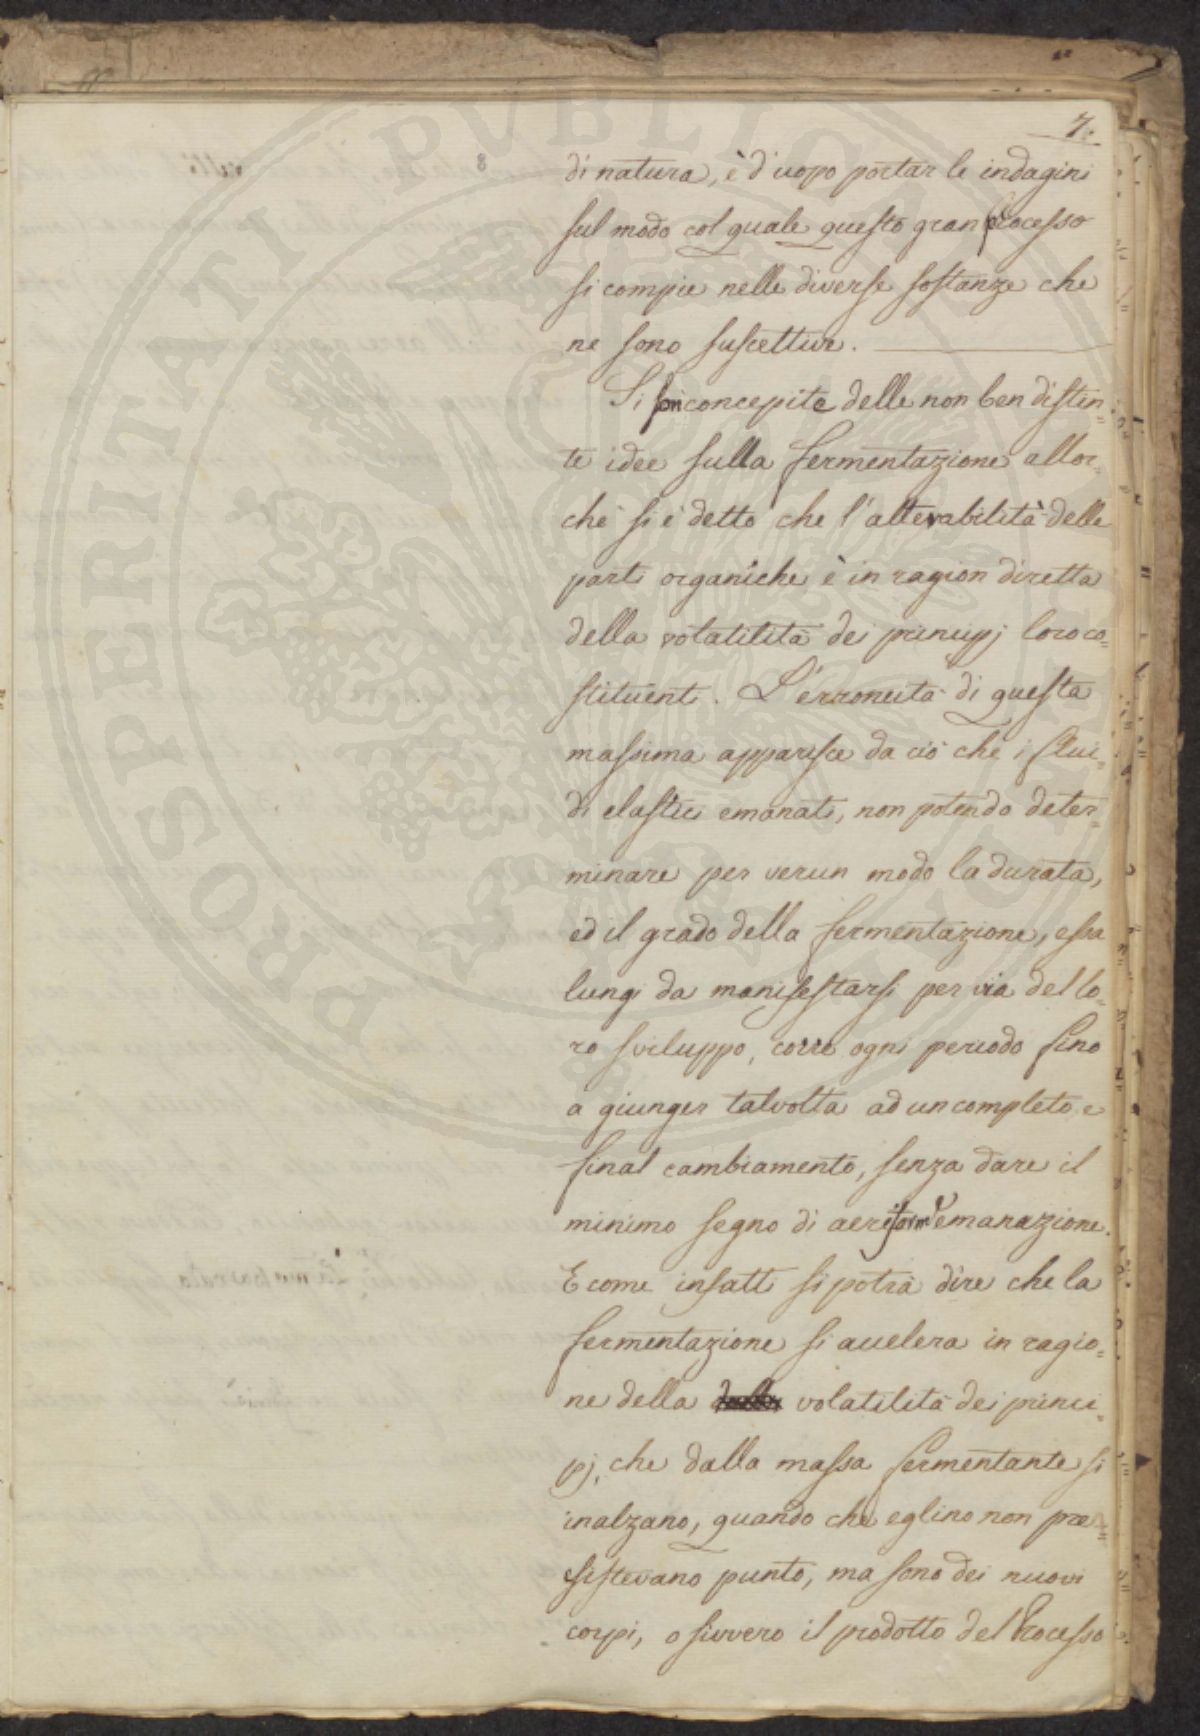 7.
di natura, è d'uopo portar le indagini
sul modo col quale questo gran processo
si compie nelle diverse sostanze che
ne sono suscettive.
Si son concepite delle non ben distin=
te idee sulla fermentazione allor=
chè si è detto che l'alterabilità delle
parti organiche è in ragion diretta
della volatilità de principj loro co=
stituenti. L'erroneità di questa
massima apparisce da ciò che i flui=
di elastici emanati, non potendo deter=
minare per verun modo la durata,
ed il grado della fermentazione, essa
lungi da manifestarsi per via del lo=
ro sviluppo, corre ogni periodo fino
a giunger talvolta ad un completo e
final cambiamento, senza dare il
minimo segno di aeriforme emanazione.
E come infatti si potrà dire che la
fermentazione si accelera in ragio=
ne della volatilità dei princi=
pj, che dalla massa fermentante si
inalzano, quando che eglino non pre=
esistevano punto, ma sono dei nuovi
corpi, o sivvero il prodotto del Processo
PROSPERITATI PUBLICAE